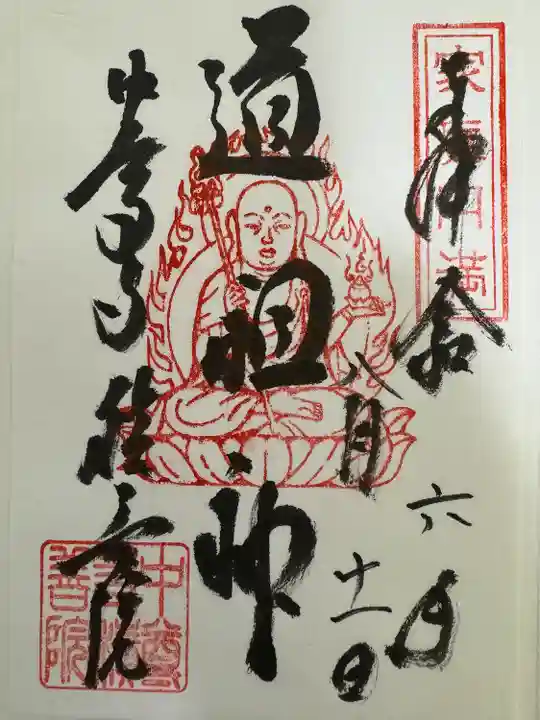 家庭円満
奉拝 令和六年
八月十一日
道祖神
中尊寺 積善院
中尊寺積善院